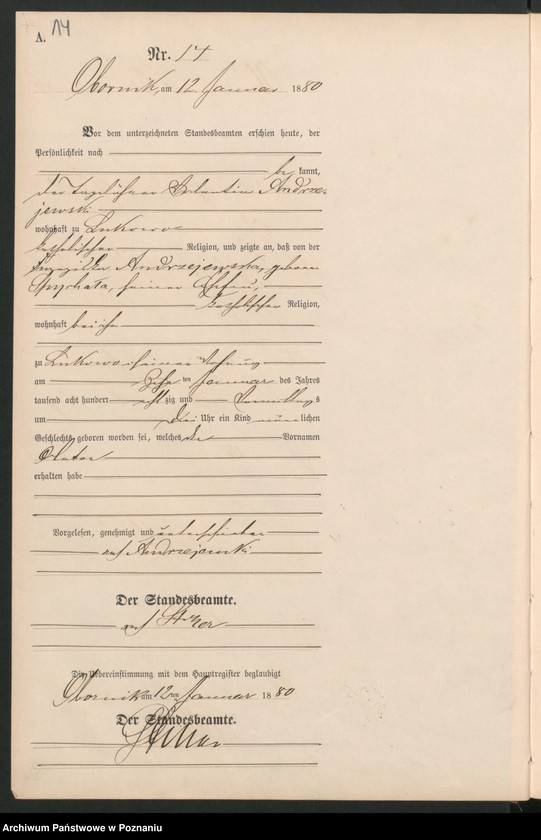 A. 14
Nr. 14
Obornik, am 12 Januar 1880
Vor dem unterzeichneten Standesbeamten erschien heute, der
Persönlichkeit nach
be kannt,
der Tagelöhner Valentin Andrze-
jewski
wohnhaft zu Lukowo
katholischer Religion, und zeigte an, daß von der
Andrzejewska, geborene
Spychała, seiner Ehefrau,
katholischer Religion,
wohnhaft bei ihm
zu Lukowo in seiner Wohnung
am ten Januar des Jahres
tausend acht hundert acht zig und Vormittags
um drei Uhr ein Kind männ lichen
Geschlechts geboren worden sei, welches den Vornamen
erhalten habe
Vorgelesen, genehmigt und unterschrieben
Andrzejewski
Der Standesbeamte.
Die Uebereinstimmung mit dem Hauptregister beglaubigt
Obornik am 12ten Januar 1880
Der Standesbeamte.
Archiwum Państwowe w Poznaniu